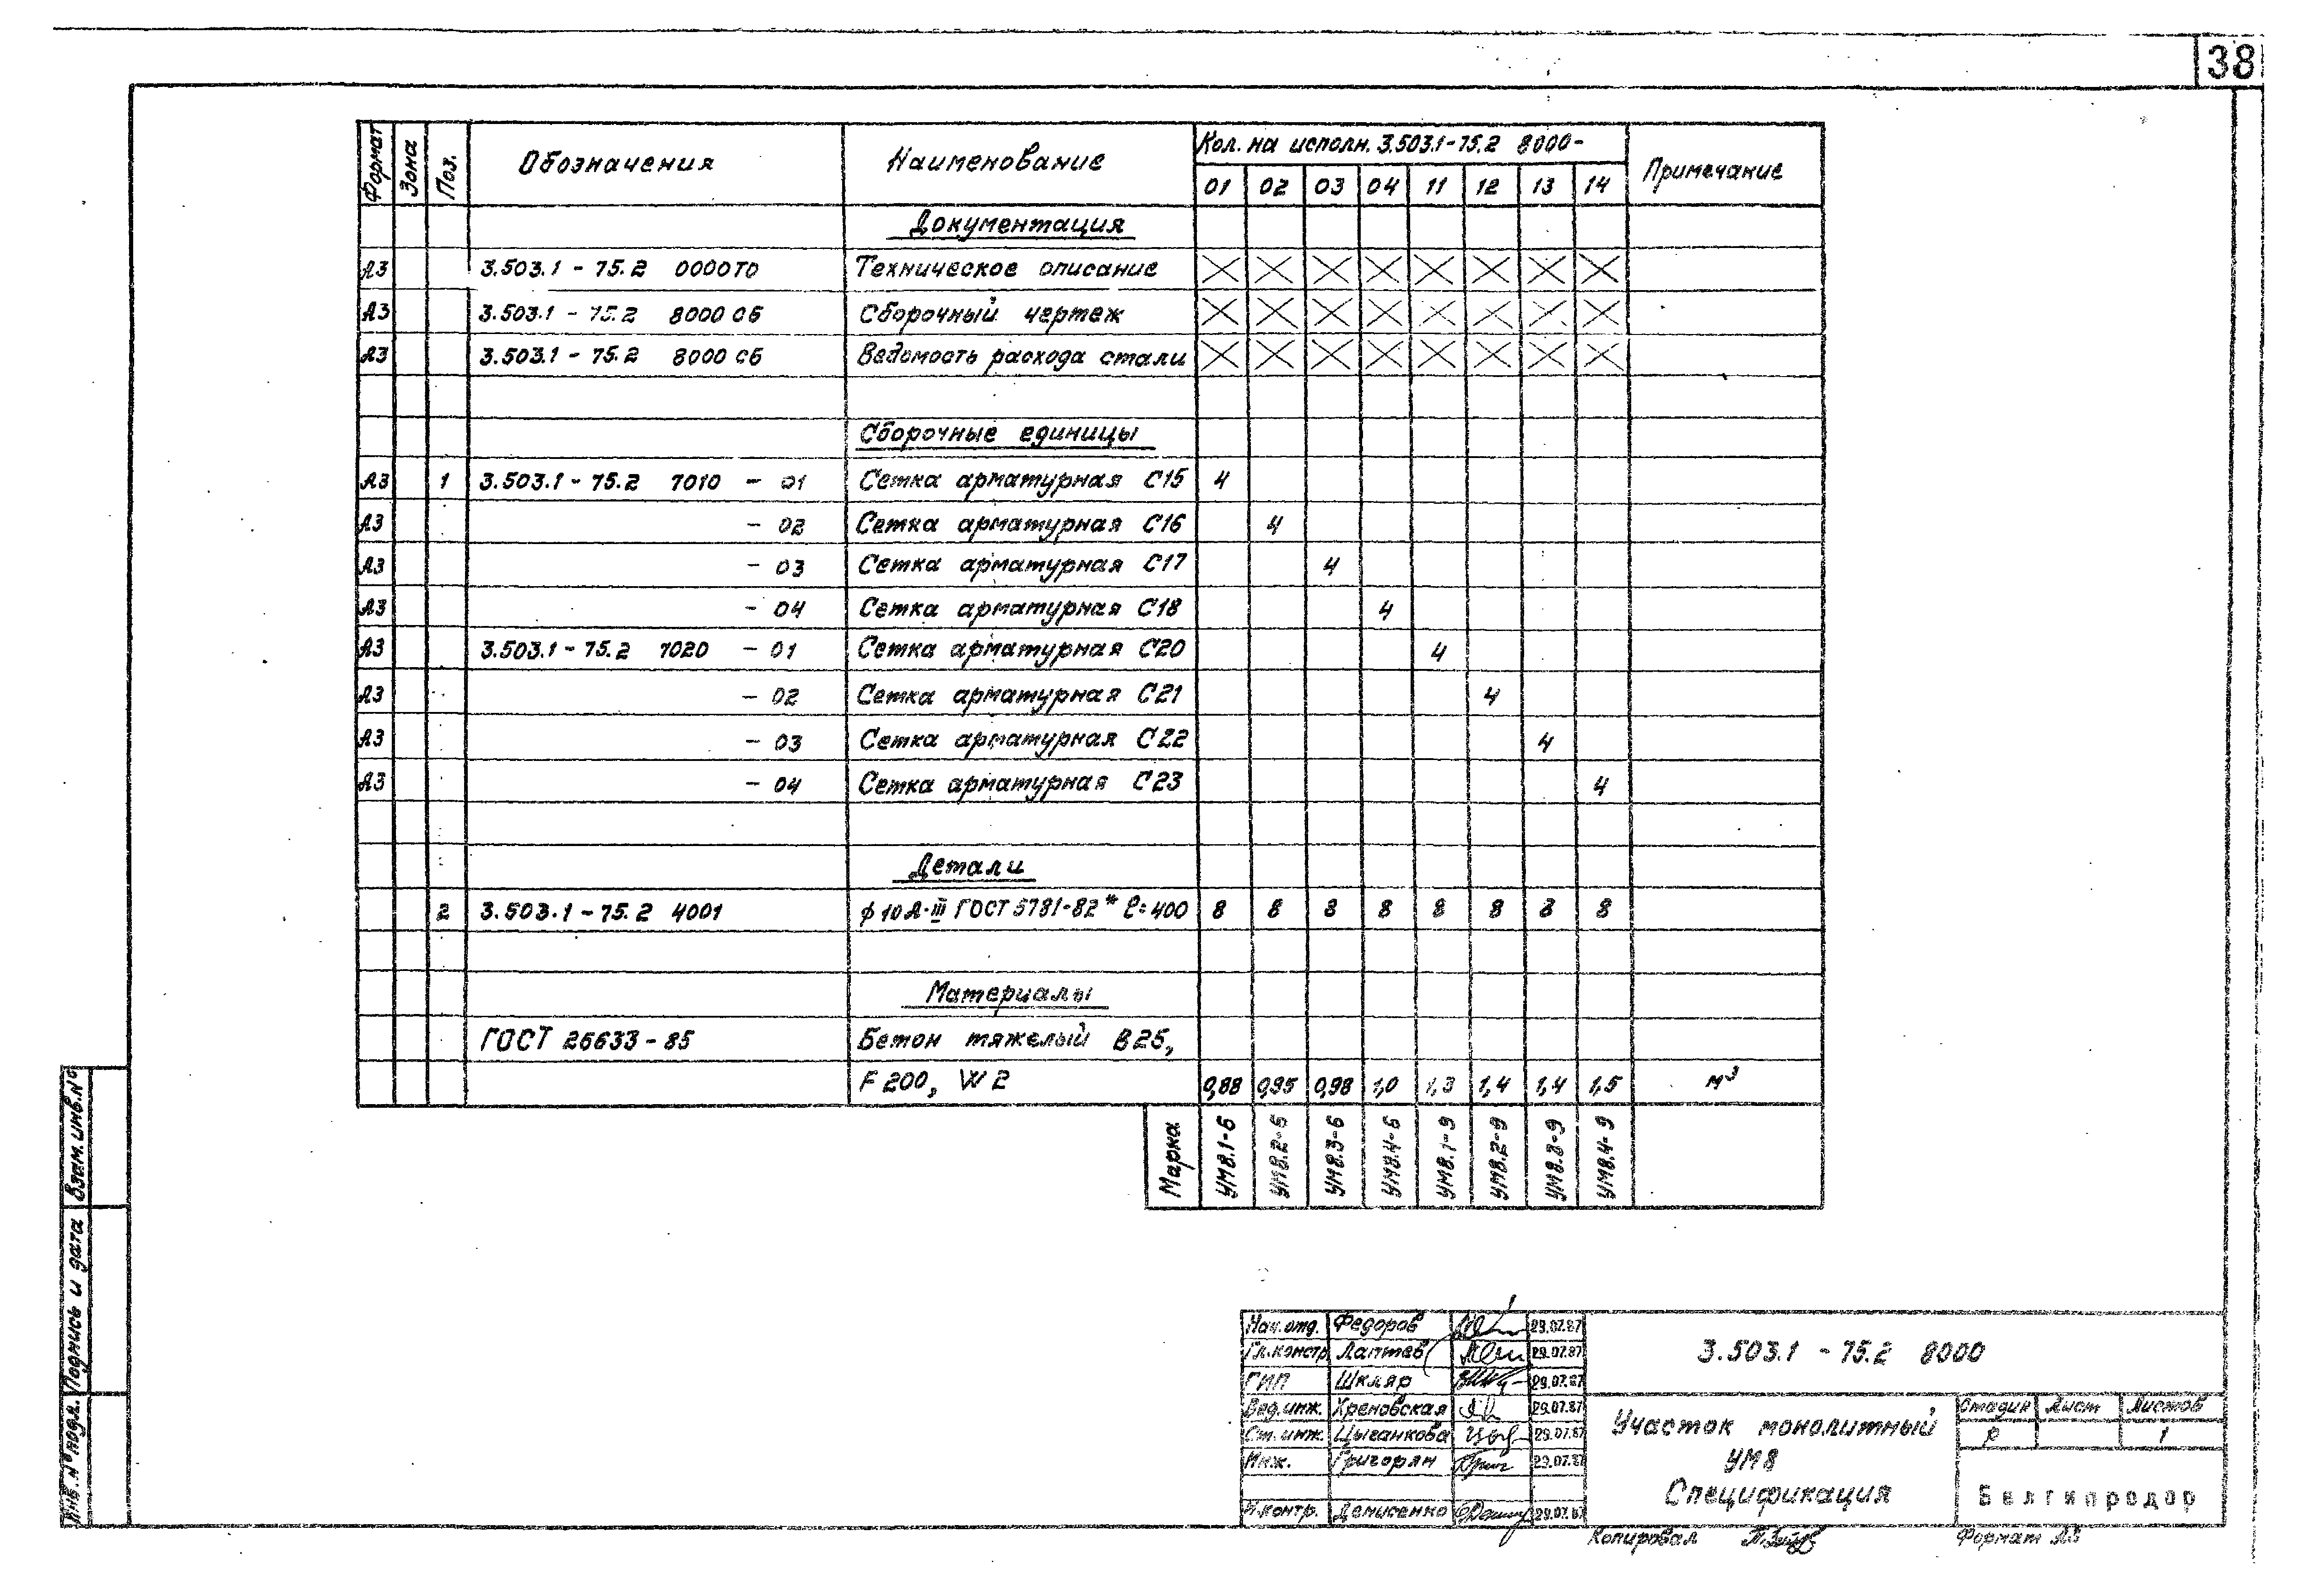 38
Формат Зона Поз. Обозначения Наименование Кол. на исполн. 3.503.1-75.2 8000- Примечание
01 02 03 04 11 12 13 14
Документация
А3 3.503.1 - 75.2 0000ТО Техническое описание
А3 3.503.1 - 75.2 8000 СБ Сборочный чертеж
А3 3.503.1 - 75.2 8000 СБ Ведомость расхода стали
Сборочные единицы
А3 1 3.503.1 - 75.2 7010 - 01 Сетка арматурная С15 4
А3 - 02 Сетка арматурная С16 4
А3 - 03 Сетка арматурная С17 4
А3 - 04 Сетка арматурная С18 4
А3 3.503.1 - 75.2 7020 - 01 Сетка арматурная С20 4
А3 - 02 Сетка арматурная С21 4
А3 - 03 Сетка арматурная С22 4
А3 - 04 Сетка арматурная С23 4
Детали
2 3.503.1 - 75.2 4001 ϕ10А-III ГОСТ 5781-82* ℓ=400 8 8 8 8 8 8 8 8
Материалы
ГОСТ 26633 - 85 Бетон тяжелый В25,
F200, W2 0,88 0,95 0,98 1,0 1,3 1,4 1,4 1,5 м³
Марка УМ8.1-6 УМ8.2-6 УМ8.3-6 УМ8.4-6 УМ8.1-9 УМ8.2-9 УМ8.3-9 УМ8.4-9
Взам. инв. №
Подпись и дата
Инв. № подл.
Нач. отд. Федоров 29.07.87
Гл. констр. Лаптев 29.07.87
ГИП Шкляр 29.07.87
Вед. инж. Хреновская 29.07.87
Ст. инж. Цыганкова 29.07.87
Инж. Григорян 29.07.87
Н. контр. Денисенко 29.07.87
3.503.1 - 75.2 8000
Участок монолитный
УМ8
Спецификация
Стадия Лист Листов
Р 1
Белгипродор
Копировал
Формат А3